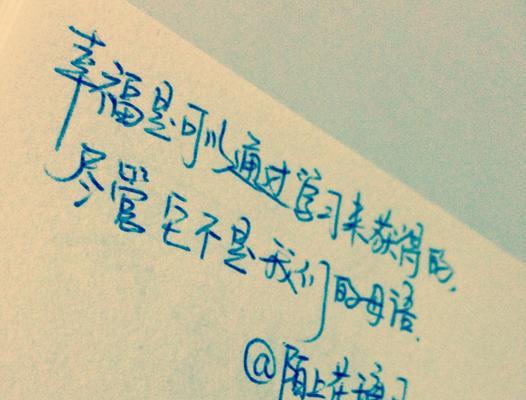 幸福是可以通过学习来获得的,
尽管它不是我们的母语.
@陌上